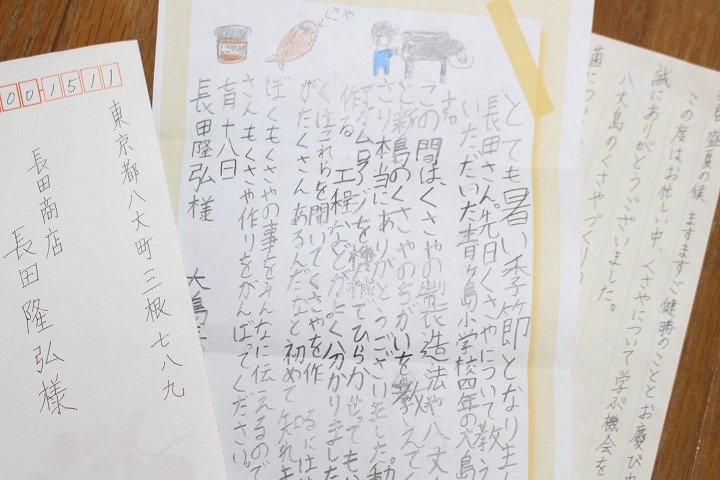 001511
東京都八丈町三根七八九
長田商店
長田隆弘様
くさや
とても暑い季節となりまし
長田さん。先日くさやについて教え
いただいた青ヶ島小学校四年の大島
す。
この間は、くさやの製造法や八丈
と新島のくさやのちがいを教えてく
さり本当にありがとうございました。動
機械でひらかせてもい
作る工程などがよく分かりました
くはこれらを聞いてくさやを作るには
がたくさんあるんだなと初めて知れま
ぼくもくさやの事をみんなに伝えるので
さんもくさや作りをがんばってください。
十八日
大島
長田隆弘様
盛夏の候 ますますご健勝のこととお慶び申
この度はお忙しい中、くさやについて学ぶ機会を
誠にありがとうございました。
八丈島のくさやづくりの
菌につ